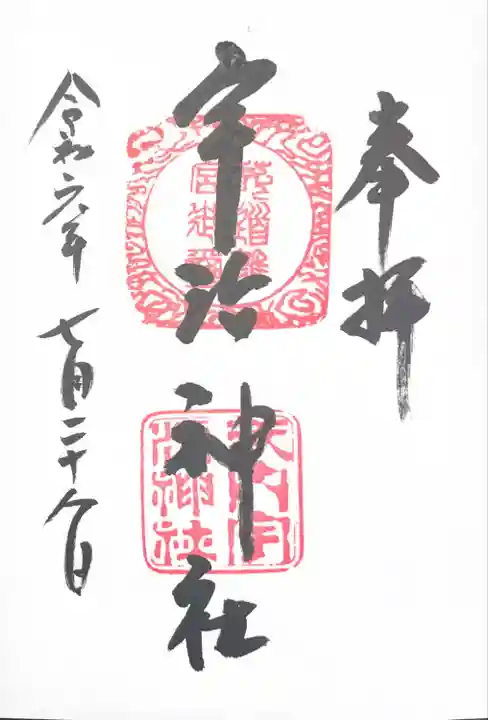 奉拝
宇治神社
式内宇
治神社
令和六年 七月二十八日